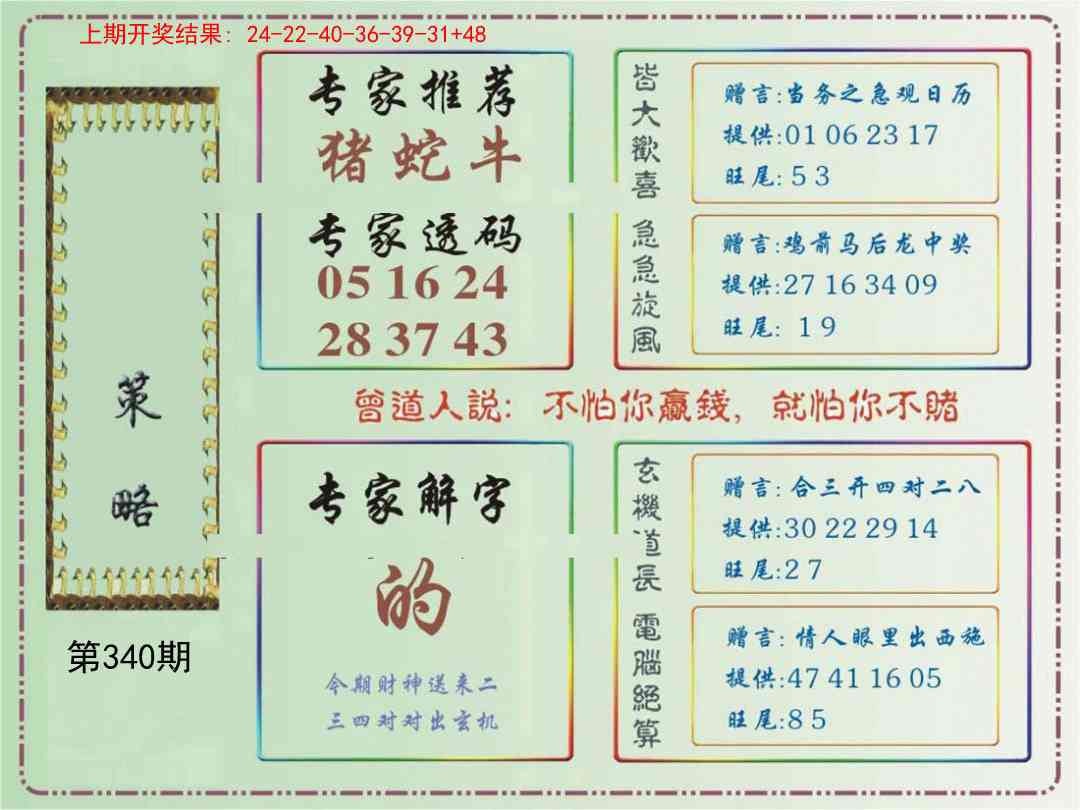 上期开奖结果: 24-22-40-36-39-31+48
策略
第340期
专家推荐
猪蛇牛
专家透码
05 16 24
28 37 43
皆大歡喜
赠言:当务之急观日历
提供:01 06 23 17
旺尾: 5 3
急急旋風
赠言:鸡前马后龙中奖
提供:27 16 34 09
旺尾: 1 9
曾道人説: 不怕你贏錢, 就怕你不賭
专家解字
的
今期财神送来二
三四对对出玄机
玄機道長
赠言: 合三开四对二八
提供:30 22 29 14
旺尾:2 7
電腦絕算
赠言: 情人眼里出西施
提供:47 41 16 05
旺尾:8 5